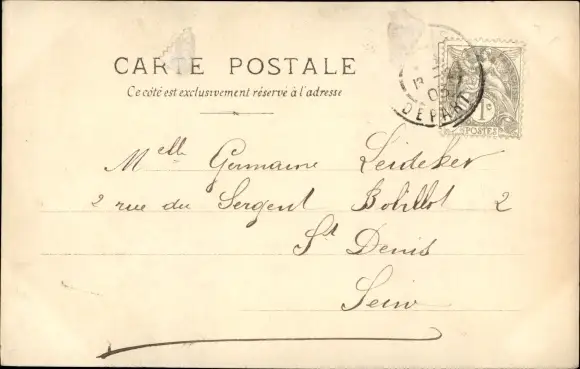 CARTE POSTALE
Ce côté est exclusivement réservé à l'adresse
13
05
DEPART
1c
POSTES
Melle Germaine Leideker
2 rue du Sergent Bobillot 2
St Denis
Seine